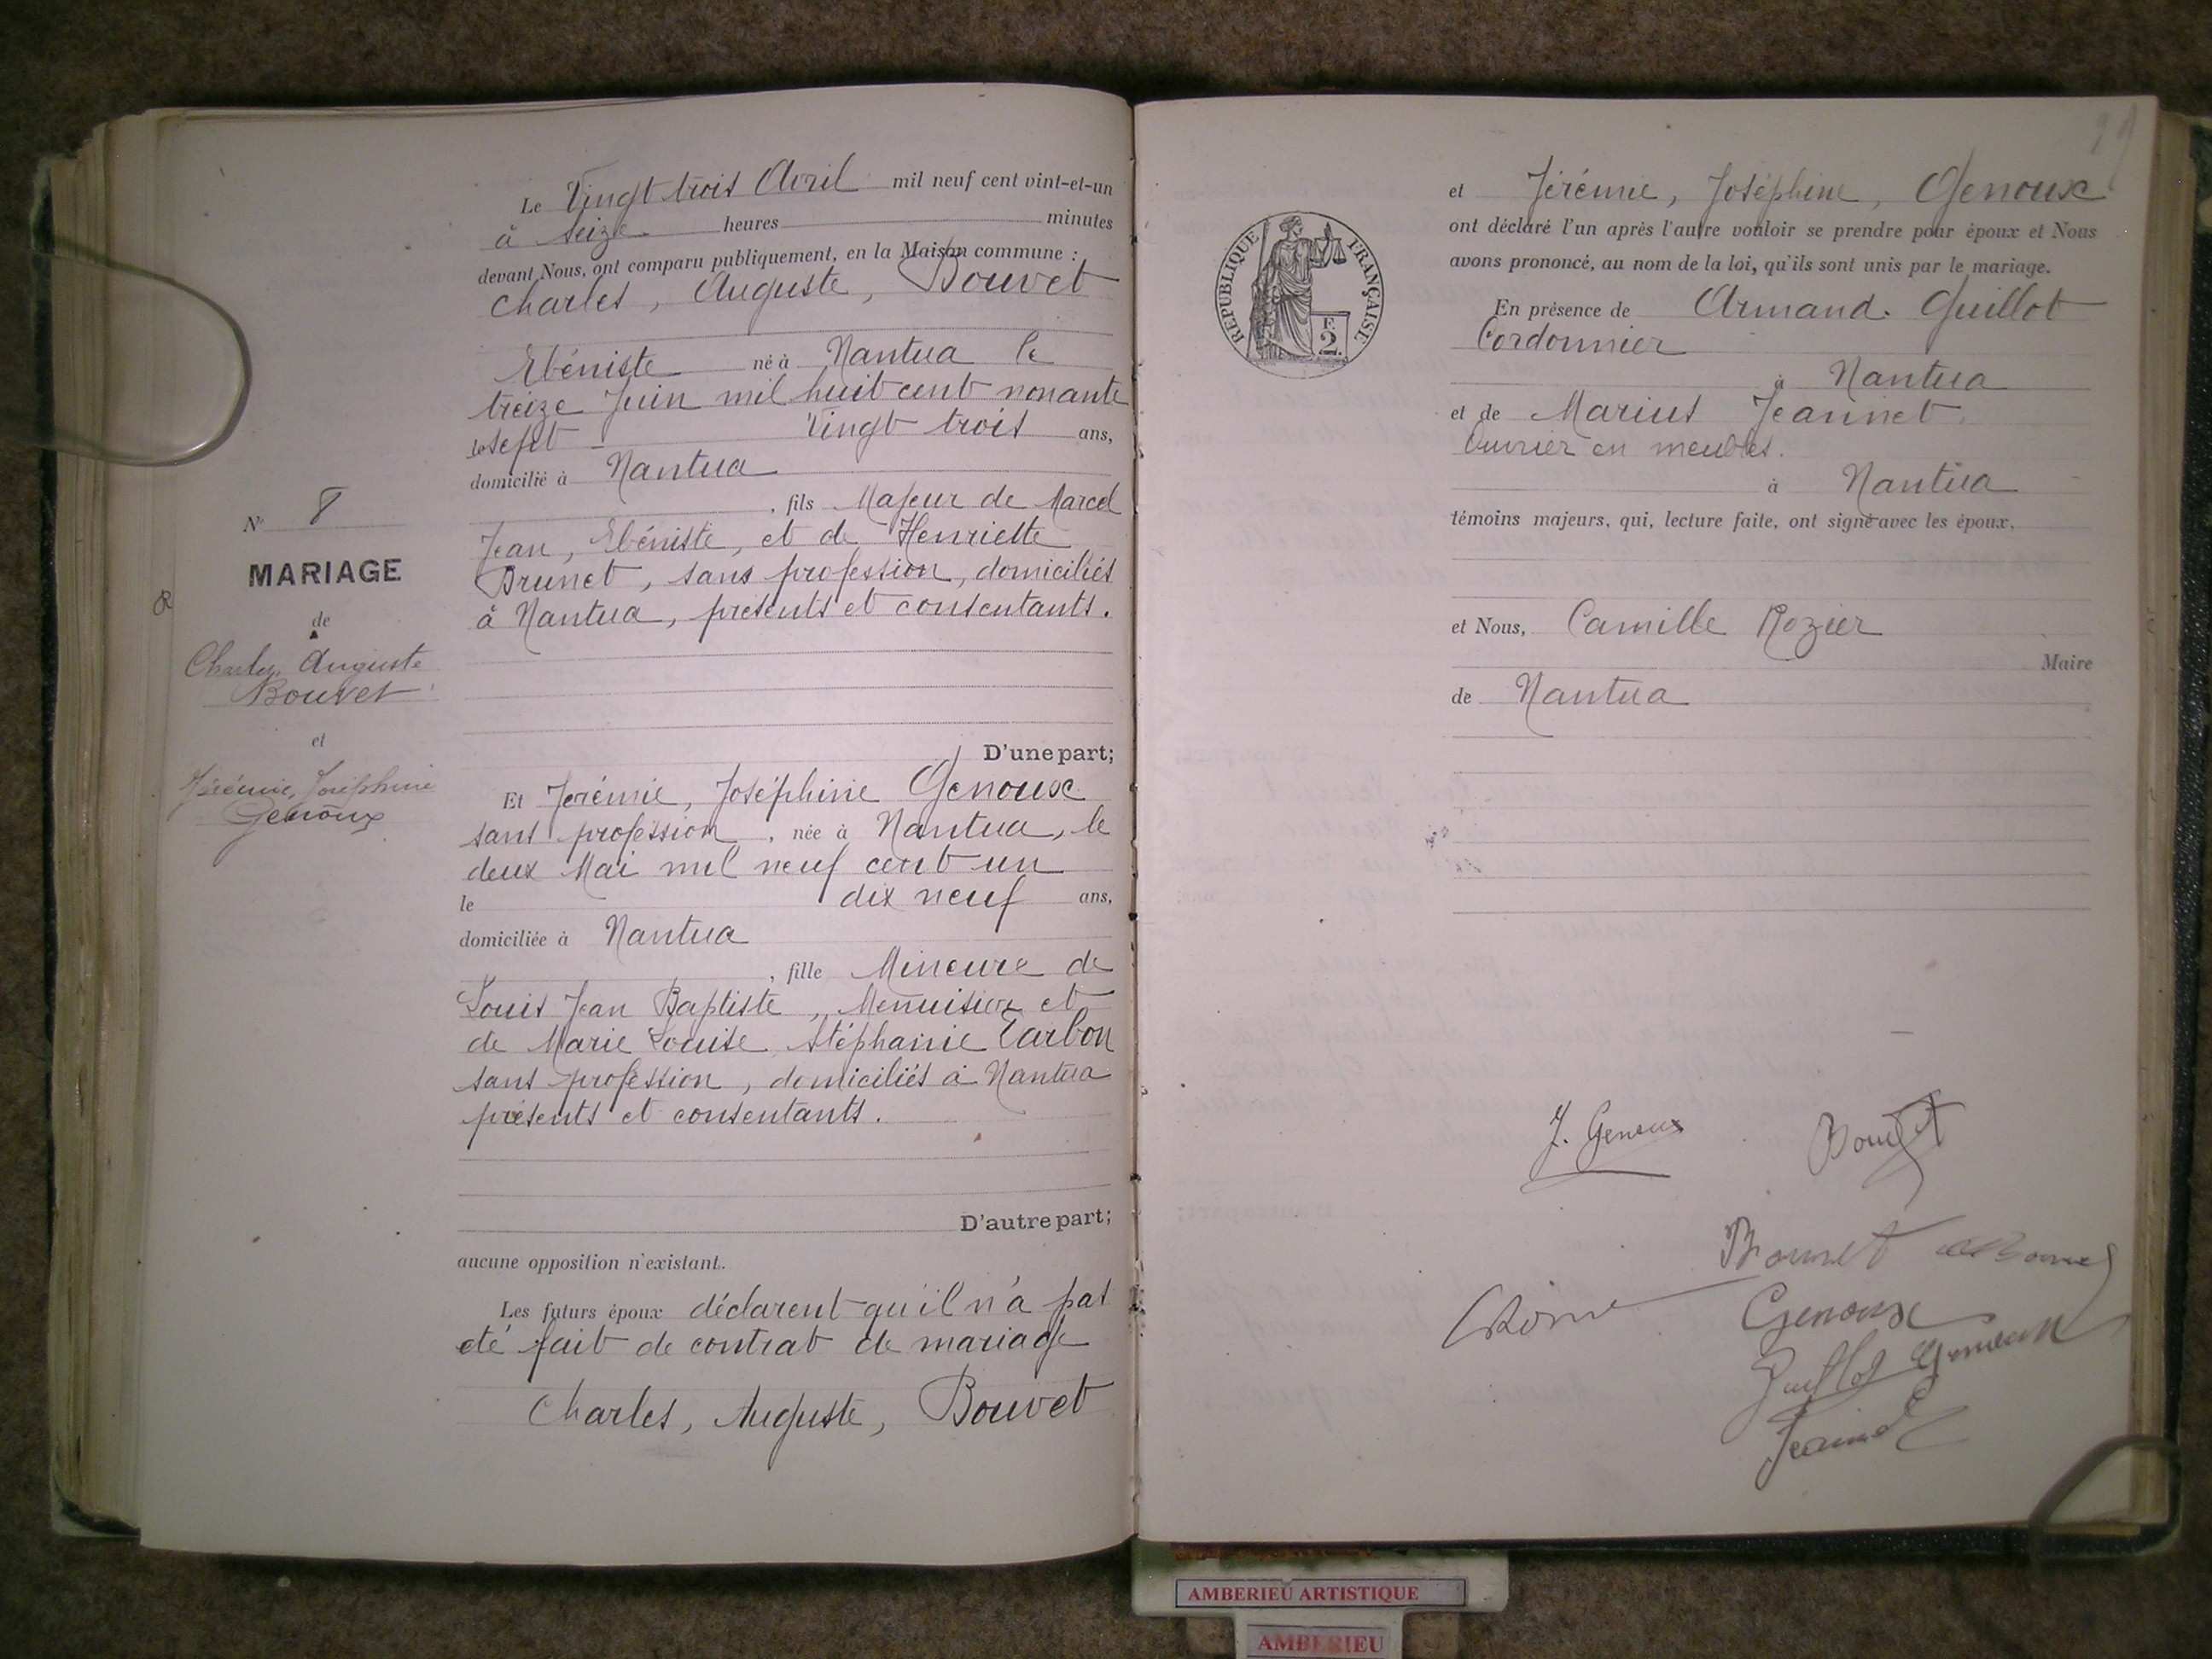 Le Vingt trois Avril mil neuf cent vint-et-un
à seize heures minutes
devant Nous, ont comparu publiquement, en la Maison commune :
Charles, Auguste, Bouvet
Ebéniste né à Nantua le
treize Juin mil huit cent nonante
le sept Vingt trois ans,
domicilié à Nantua
, fils Majeur de Marcel
Jean, Ebéniste, et de Henriette
Brunet, sans profession, domiciliés
à Nantua, présents et consentants.
D'une part;
N° 8
MARIAGE
de
Charles Auguste
Bouvet
et
Jérémie, Joséphine
Genoux
Et Jérémie, Joséphine Genoux
sans profession, née à Nantua, le
deux Mai mil neuf cent un
le dix neuf ans,
domiciliée à Nantua
, fille Mineure de
Louis Jean Baptiste, Menuisier et
de Marie Louise Stéphanie Tarbon
sans profession, domiciliés à Nantua
présents et consentants.
D'autre part;
aucune opposition n'existant.
Les futurs époux déclarent qu'il n'a pas
été fait de contrat de mariage
Charles, Auguste, Bouvet
RÉPUBLIQUE FRANÇAISE
F.
2.
et Jérémie, Joséphine, Genoux
ont déclaré l'un après l'autre vouloir se prendre pour époux et Nous
avons prononcé, au nom de la loi, qu'ils sont unis par le mariage.
En présence de Armand. Guillot
Cordonnier
à Nantua
et de Marius Jeannet
Ouvrier en meubles.
à Nantua
témoins majeurs, qui, lecture faite, ont signé avec les époux,
et Nous, Camille Rozier
Maire
de Nantua
J. Genoux Bouvet
Genoux
AMBERIEU ARTISTIQUE
AMBERIEU